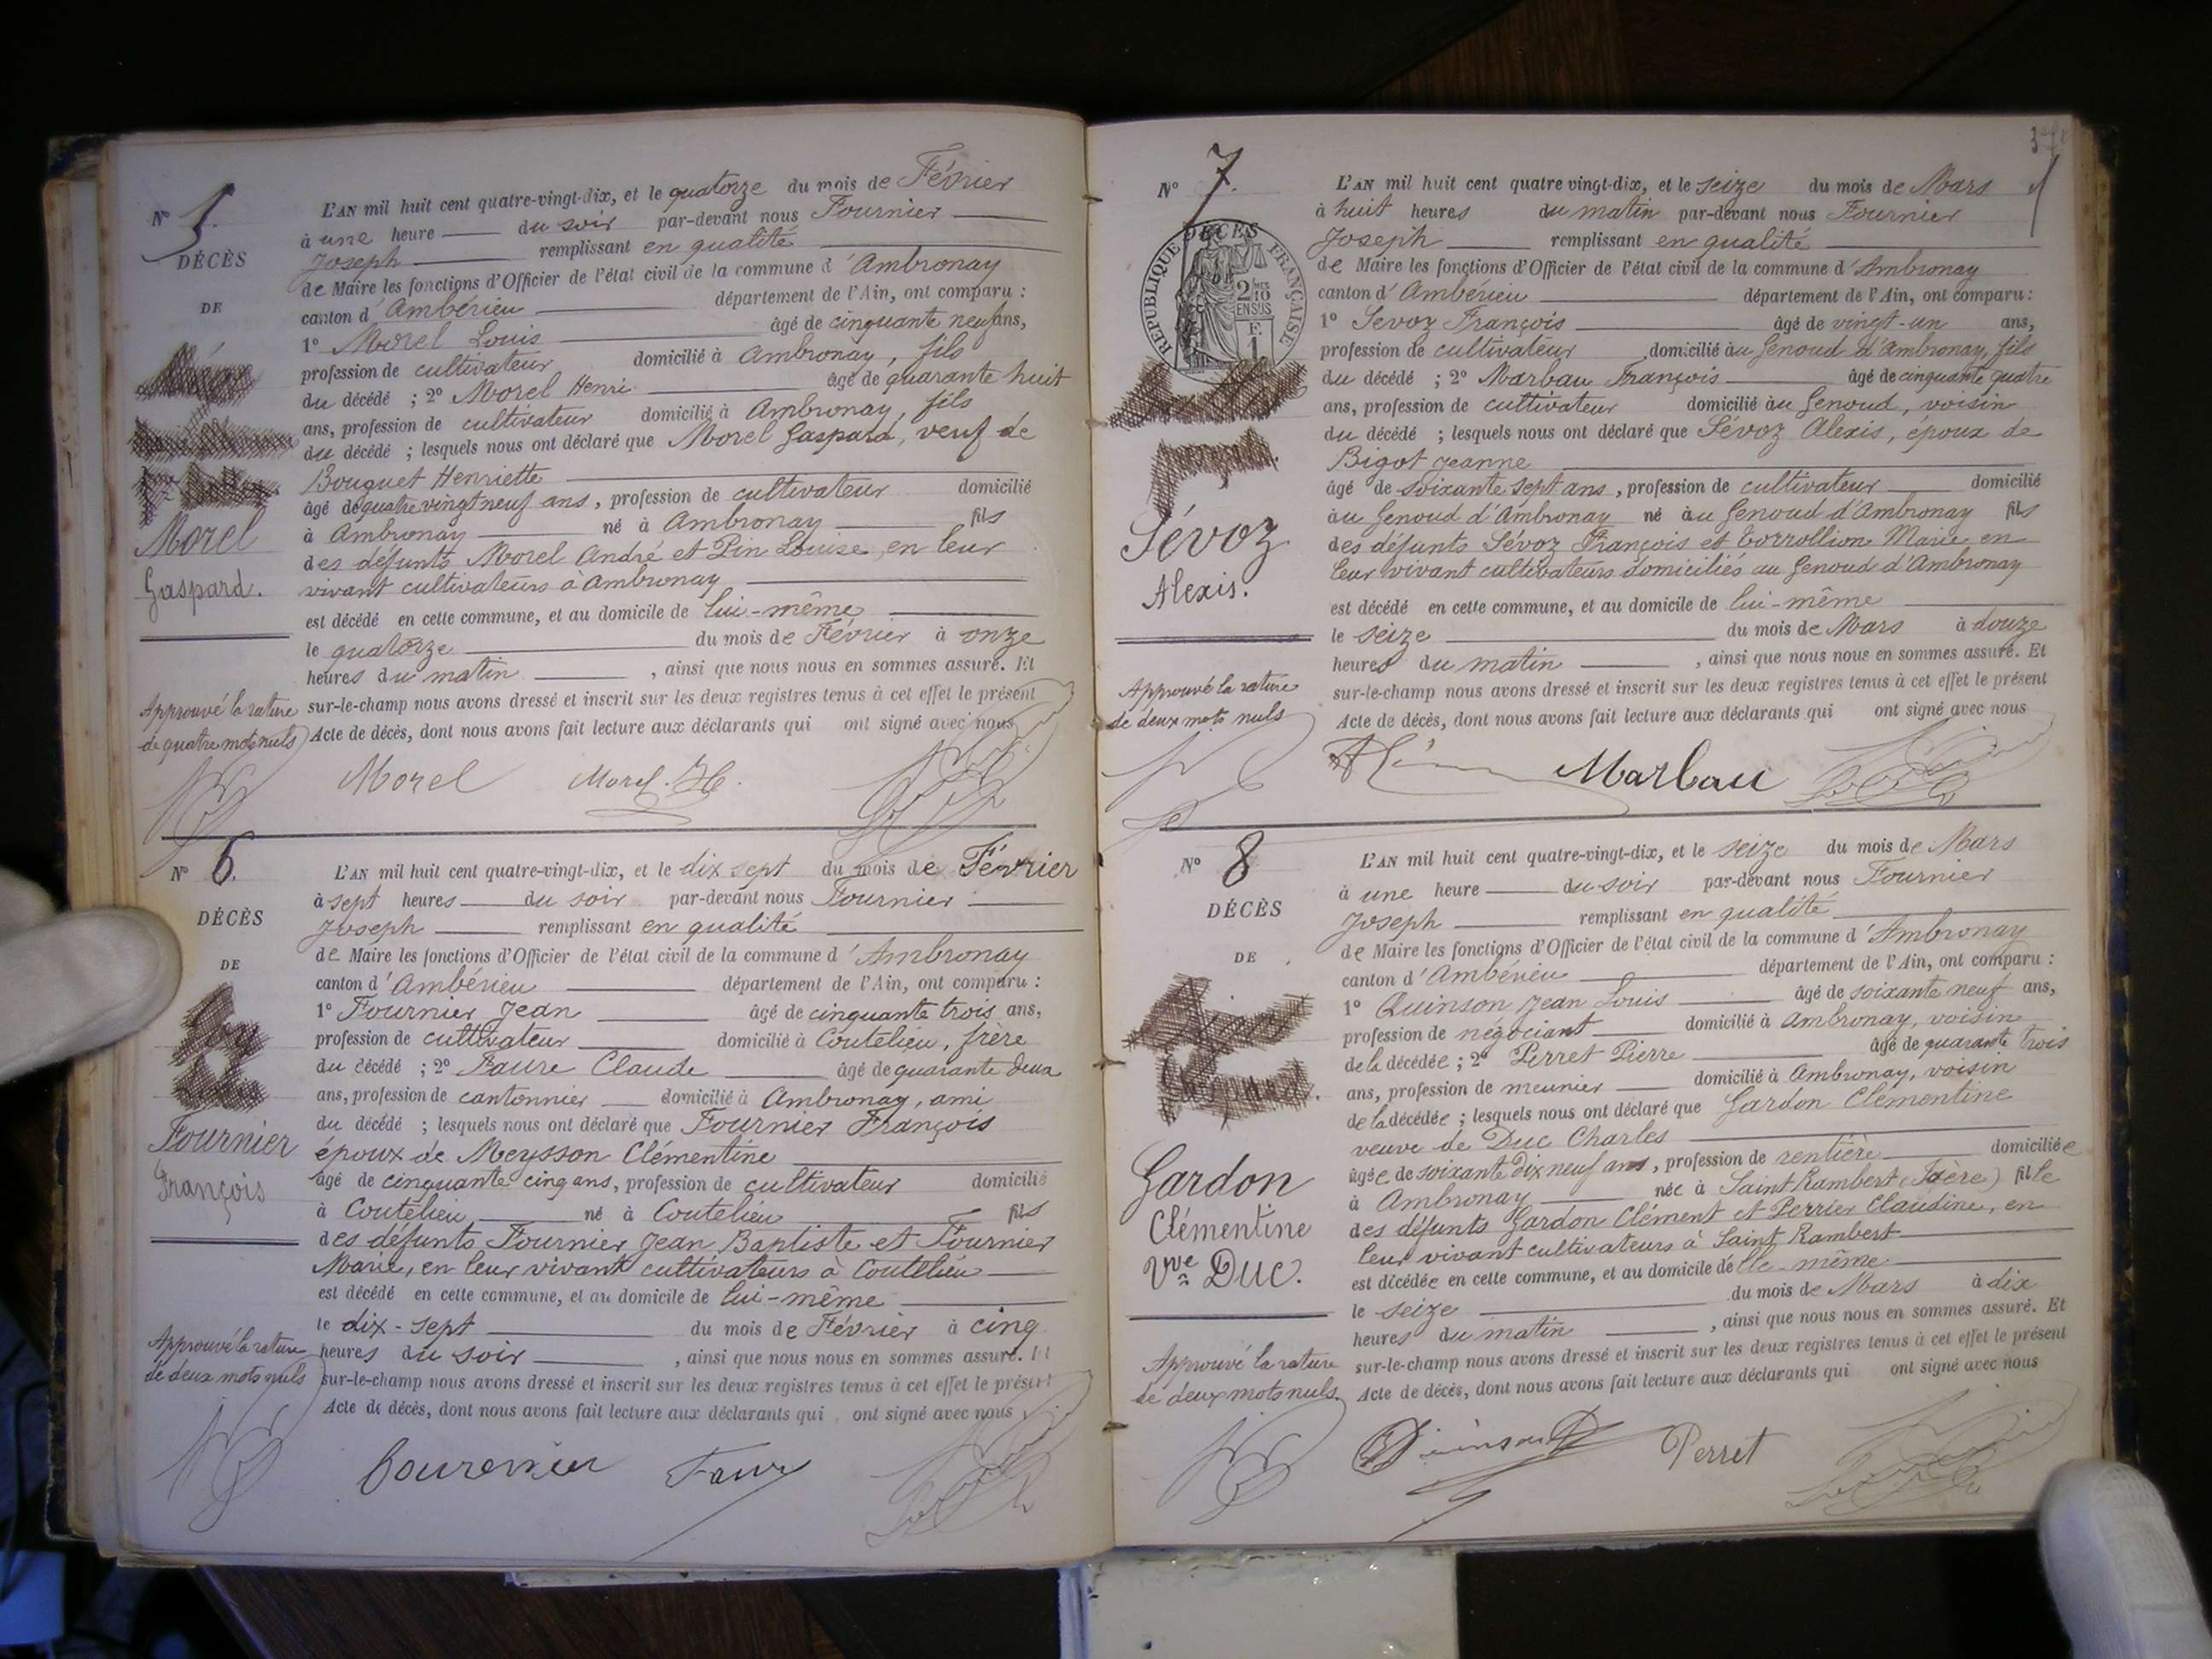 N° 5.
DÉCÈS
DE
Morel
Gaspard.
Approuvé la rature
de quatre mots nuls
L'AN mil huit cent quatre-vingt-dix, et le quatorze du mois de Février
à une heure du soir par-devant nous Fournier
Joseph remplissant en qualité
de Maire les fonctions d'Officier de l'état civil de la commune d'Ambronay
canton d'Ambérieu département de l'Ain, ont comparu :
1° Morel Louis âgé de cinquante neuf ans,
profession de cultivateur domicilié à Ambronay, fils
du décédé ; 2° Morel Henri âgé de quarante huit
ans, profession de cultivateur domicilié à Ambronay, fils
du décédé ; lesquels nous ont déclaré que Morel Gaspard, veuf de
Bouquet Henriette
âgé de quatre vingt neuf ans, profession de cultivateur domicilié
à Ambronay né à Ambronay fils
des défunts Morel André et Pin Louise, en leur
vivant cultivateurs à Ambronay
est décédé en cette commune, et au domicile de lui-même
le quatorze du mois de Février à onze
heures du matin , ainsi que nous nous en sommes assuré. Et
sur-le-champ nous avons dressé et inscrit sur les deux registres tenus à cet effet le présent
Acte de décès, dont nous avons fait lecture aux déclarants qui ont signé avec nous
Morel Morel. H.
N° 6.
DÉCÈS
DE
Fournier
François
Approuvé la rature
de deux mots nuls
L'AN mil huit cent quatre-vingt-dix, et le dix sept du mois de Février
à sept heures du soir par-devant nous Fournier
Joseph remplissant en qualité
de Maire les fonctions d'Officier de l'état civil de la commune d'Ambronay
canton d'Ambérieu département de l'Ain, ont comparu :
1° Fournier Jean âgé de cinquante trois ans,
profession de cultivateur domicilié à Coutelieu, frère
du décédé ; 2° Faure Claude âgé de quarante deux
ans, profession de cantonnier domicilié à Ambronay, ami
du décédé ; lesquels nous ont déclaré que Fournier François
époux de Meysson Clémentine
âgé de cinquante cinq ans, profession de cultivateur domicilié
à Coutelieu né à Coutelieu fils
des défunts Fournier Jean Baptiste et Fournier
Marie, en leur vivant cultivateurs à Coutelieu
est décédé en cette commune, et au domicile de lui-même
le dix-sept du mois de Février à cinq
heures du soir , ainsi que nous nous en sommes assuré. Et
sur-le-champ nous avons dressé et inscrit sur les deux registres tenus à cet effet le présent
Acte de décès, dont nous avons fait lecture aux déclarants qui ont signé avec nous
Faure
N° 7.
DÉCÈS
RÉPUBLIQUE FRANÇAISE
2/10 EN SUS
Sévoz
Alexis.
Approuvé la rature
de deux mots nuls
L'AN mil huit cent quatre vingt-dix, et le seize du mois de Mars
à huit heures du matin par-devant nous Fournier
Joseph remplissant en qualité
de Maire les fonctions d'Officier de l'état civil de la commune d'Ambronay
canton d'Ambérieu département de l'Ain, ont comparu :
1° Sevoz François âgé de vingt-un ans,
profession de cultivateur domicilié au Genoud d'Ambronay, fils
du décédé ; 2° Marbau François âgé de cinquante quatre
ans, profession de cultivateur domicilié au Genoud, voisin
du décédé ; lesquels nous ont déclaré que Sévoz Alexis, époux de
Bigot Jeanne
âgé de soixante sept ans, profession de cultivateur domicilié
au Genoud d'Ambronay né au Genoud d'Ambronay fils
des défunts Sévoz François et Marie en
leur vivant cultivateurs domiciliés au Genoud d'Ambronay
est décédé en cette commune, et au domicile de lui-même
le seize du mois de Mars à douze
heures du matin , ainsi que nous nous en sommes assuré. Et
sur-le-champ nous avons dressé et inscrit sur les deux registres tenus à cet effet le présent
Acte de décès, dont nous avons fait lecture aux déclarants qui ont signé avec nous
Marbau
N° 8
DÉCÈS
DE
Gardon
Clémentine
Vve Duc.
Approuvé la rature
de deux mots nuls.
L'AN mil huit cent quatre-vingt-dix, et le seize du mois de Mars
à une heure du soir par-devant nous Fournier
Joseph remplissant en qualité
de Maire les fonctions d'Officier de l'état civil de la commune d'Ambronay
canton d'Ambérieu département de l'Ain, ont comparu :
1° Quinson Jean Louis âgé de soixante neuf ans,
profession de négociant domicilié à Ambronay, voisin
de la décédée ; 2° Perret Pierre âgé de quarante trois
ans, profession de meunier domicilié à Ambronay, voisin
de la décédée ; lesquels nous ont déclaré que Gardon Clémentine
veuve de Duc Charles
âgée de soixante dix neuf ans, profession de rentière domiciliée
à Ambronay née à Saint Rambert (Isère) fille
des défunts Gardon Clément et Perrier Claudine, en
leur vivant cultivateurs à Saint Rambert
est décédée en cette commune, et au domicile d'elle-même
le seize du mois de Mars à dix
heures du matin , ainsi que nous nous en sommes assuré. Et
sur-le-champ nous avons dressé et inscrit sur les deux registres tenus à cet effet le présent
Acte de décès, dont nous avons fait lecture aux déclarants qui ont signé avec nous
Perret